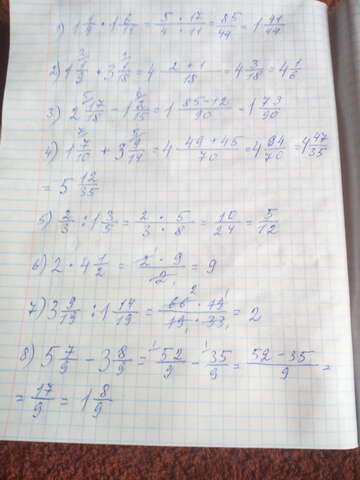 1) 1 1/4 · 1 6/11 = 5 · 17/4 · 11 = 85/44 = 1 41/44
2) 1 1/9 + 3 1/18 = 4 2 + 1/18 = 4 3/18 = 4 1/6
3) 2 17/18 - 1 2/15 = 1 85 - 12/90 = 1 73/90
4) 1 7/10 + 3 9/14 = 4 49 + 45/70 = 4 94/70 = 4 47/35
= 5 12/35
5) 2/3 : 1 3/5 = 2 · 5/3 · 8 = 10/24 = 5/12
6) 2 · 4 1/2 = 2 · 9/2 = 9
7) 3 9/19 : 1 14/19 = 66 · 19/19 · 33 = 2
8) 5 7/9 - 3 8/9 = 52/9 - 35/9 = 52 - 35/9 =
= 17/9 = 1 8/9